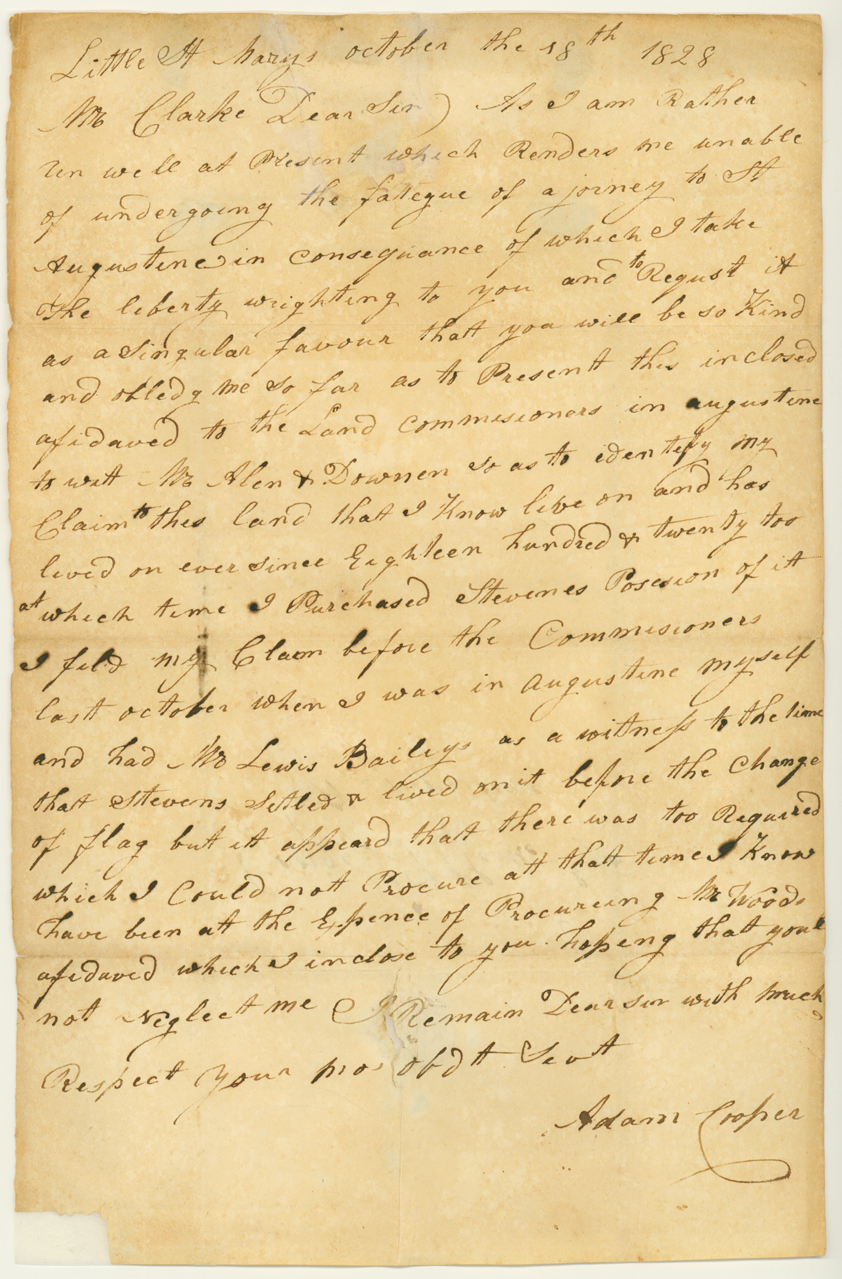 Little St Marys october the 18th 1828
Mr Clarke Dear Sir) As I am Rather
un well at Present which Renders me unable
of undergoing the fategue of a jorney to St
Augustine in consequance of which I take
the liberty wrighting to you and to Request it
as a Singular favour that you will be so Kind
and obledg me so far as to Present this inclosed
afidaved to the Land Commisioners in augustine
to wit Mr Alen & Downen so as to identify my
Claim to this land that I Know live on and has
lived on ever since Eighteen hundred & twenty too
at which time I Purchased Stevenes Posesion of it
I fild my Claim before the Commisioners
last october when I was in augustine myself
and had Mr Lewis Baileys as a witness to the time
that Stevens Setled & lived on it before the Change
of flag but it appeard that there was too Required
which I Could not Procure att that time I Know
have been att the Expence of Procureing Mr Woods
afidaved which I inclose to you hoping that youl
not Neglect me I Remain Dear sir with much
Respect your mos obdtt Servtt
Adam Cooper